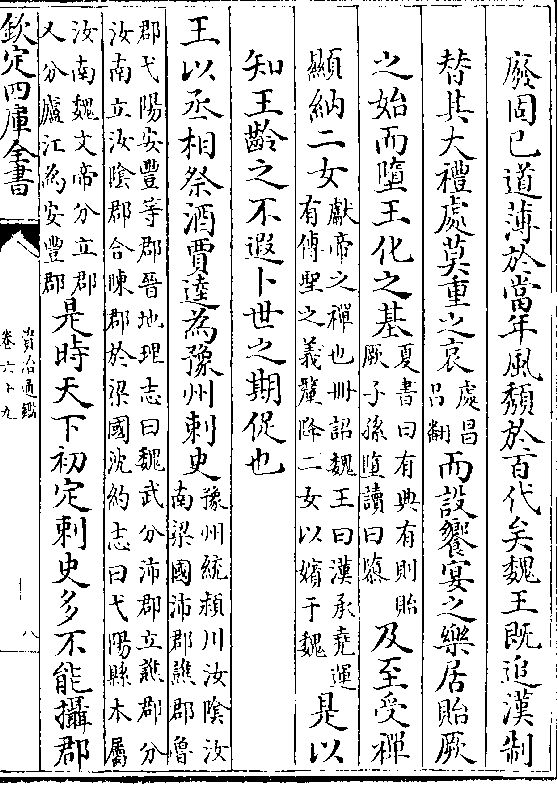 廢固已道薄於當年風頽於百代矣魏王既追漢制
替其大禮處莫重之哀處昌吕翻而設饗宴之樂居貽厥
之始而墮王化之基夏書曰有典有則貽厥子孫墮讀曰隳及至受禪
顯納二女獻帝之禪也册詔魏王曰漢承堯運有傳聖之義釐降二女以嬪于魏是以
知王齡之不遐卜世之期促也
王以丞相祭酒賈逵為豫州刺史豫州統潁川汝陰汝南梁國沛郡譙郡魯
郡弋陽安豐等郡晉地理志曰魏武分沛郡立譙郡分汝南立汝陰郡合陳郡於梁國沈約志曰弋陽縣本屬
汝南魏文帝分立郡又分廬江為安豐郡是時天下初定刺史多不能攝郡
欽定四庫全書
資治通鑑
卷六十九
八